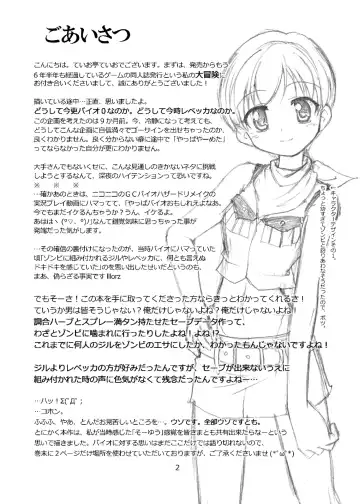 ごあいさつ
こんにちは。ていお亭ていおでございます。まずは、発売からもう
6年半年も経過しているゲームの同人誌発行という私の大冒険に
お付き合いくださいまして、誠にありがとうございました!
描いている途中…正直、思いましたよ。
どうして今更バイオ0なのか。どうして今時レベッカなのか。
この企画を考えたのは9か月前。今、冷静になって考えても、
どうしてこんな企画に自信満々でゴーサインを出せちゃったのか、
良く分からない。多分分からない癖に途中で「やっぱやーめた」
とならなかった自分が更にわかりません。
大手さんでもないくせに、こんな見通しのきかないネタに挑戦
しようとするなんて、深夜のハイテンションって恐いですね。
※ ※ ※
…確かあのときは、ニコニコのGCバイオハザードリメイクの
実況プレイ動画にハマってて、「やっぱバイオおもしれえよなあ、
今でもまだイケるんちゃうか?うん、イケるよ。
あはは(°▽、°)」なんて錯覚気味に思っちゃった事が
発端だった気がします。
…その確信の裏付けになったのが、当時バイオにハマっていた
頃「ゾンビに組み付かれるジルやレベッカに、何とも言えぬ
ドキドキを感じていた」のを思い出したせいだったのです。
まあ、偽らざる事実です!!!orz
でもそーさ!この本を手に取ってくださった方ならきっとわかってくれるさ!
ていうか男は皆そうだよね!?俺だけじゃないよね?俺だけじゃないよね!!
調合ハーブとスプレー満タン持たせたセーブデータ作って、
わざとゾンビに噛まれに行ったりしたよね!よね!?
これまでに何人のジルをゾンビのエサにしたか、わかったもんじゃないですよね!
ジルよりレベッカの方が好みなんですが、セーブが出来ないうえに
組み付かれた時の声に色気がなくて残念だったんですよねー…
…ハッ!Σ(ﾟДﾟ;
…コホン。
ふふふ、やあ、とんだお見苦しいところを…。ウソです。全部ウソですとも。
とにかく本作は、私が当時感じた「そーゆう」感覚を皆さまとも共有出来たらなーという
思いで描きました。バイオに対する思いはまだここだけでは語り切れないので、
巻末に2ページだけ場所を使わせていただいておりますが、ご了承くださいませ(*´ω`*)
2